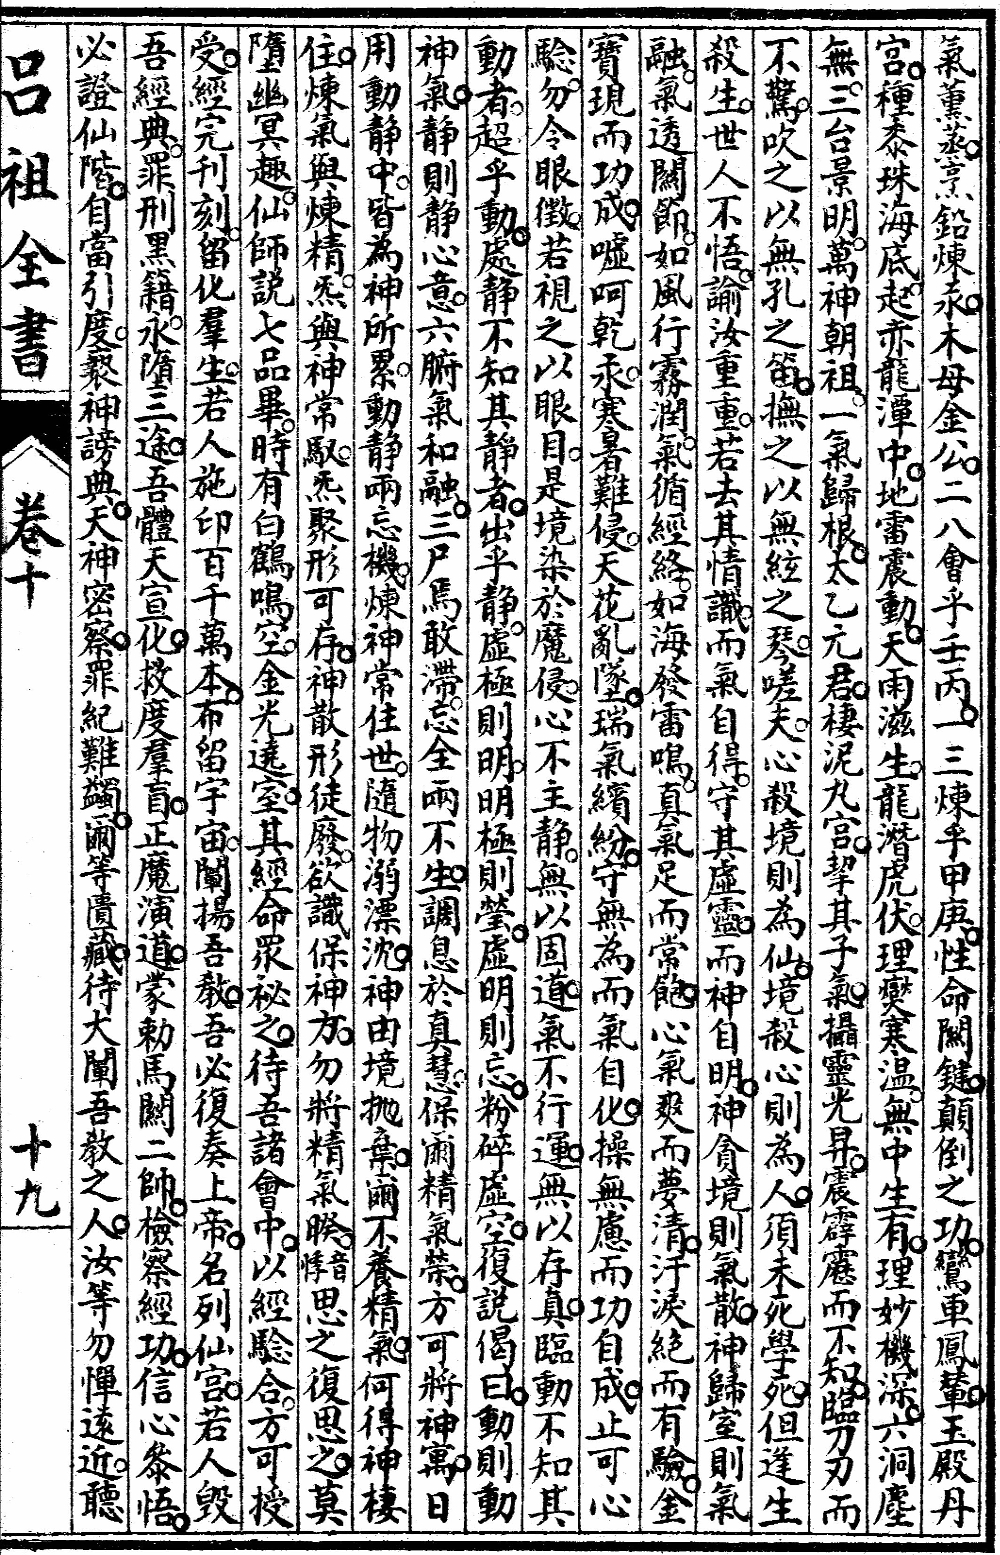 氣薰蒸烹鉛煉汞木母金公二八會乎壬丙一三煉乎甲庚性命關鍵顛倒之功鸞車鳳輦玉殿丹
宮種黍珠海底起赤龍潭中地雷震動天雨滋生龍潛虎伏理爕寒温無中生有理妙機深六洞塵
無三台景明萬神朝祖一氣歸根太乙元君棲泥丸宮挈其子氣攝靈光昇震霹靂而不知臨刀刃而
不驚吹之以無孔之笛撫之以無絃之琴嗟夫心殺境則為仙境殺心則為人須未死學死但逢生
殺生世人不悟諭汝重重若去其情識而氣自得守其虛靈而神自明神貪境則氣散神歸室則氣
融氣透關節如風行霧潤氣循經絡如海發雷鳴真氣足而常飽心氣爽而夢清汗淚絕而有驗金
寶現而功成噓呵乾汞寒暑難侵天花亂墜瑞氣繽紛守無為而氣自化操無慮而功自成止可心
騐勿令眼徵若視之以眼目是境染於魔侵心不主靜無以固道氣不行運無以存真臨動不知其
動者超乎動處靜不知其靜者出乎靜虛極則明明極則瑩虛明則忘粉碎虛空復說偈曰動則動
神氣靜則靜心意六腑氣和融三尸馬敢滯忘全兩不生調息於真慧保爾精氣榮方可將神寓日
用動靜中皆為神所累動靜兩忘機煉神常住世隨物溺漂沈神由境拋棄爾不養精氣何得神棲
住煉氣與煉精炁與神常馭炁聚形可存神散形徒廢欲識保神方勿將精氣睽音悸思之復思之莫
墮幽冥趣仙師說七品畢時有白鶴鳴空金光遶室其經命眾祕之待吾諸會中以經騐合方可授
受經完刊刻留化羣生若人施印百千萬本布留宇宙闡揚吾教吾必復奏上帝名列仙宮若人毀
吾經典罪刑黑籍永墮三途吾體天宣化救度羣盲正魔演道蒙勅馬關二帥檢察經功信心叅悟
必證仙階自當引度褻神謗典天神密察罪紀難蠲爾等匱藏待大闡吾教之人汝等勿憚遠近聽
呂祖全書
卷十
十九